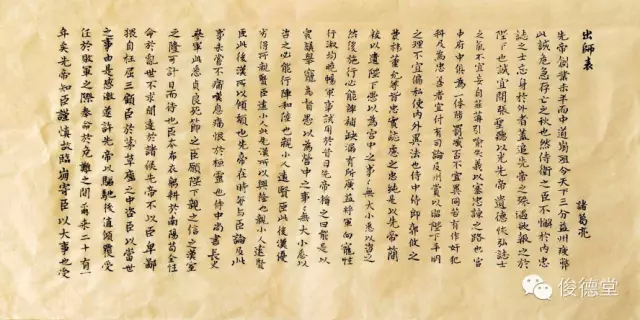 出師表 諸葛亮
先帝創業未半而中道崩殂今天下三分益州疲弊
此誠危急存亡之秋也然侍衛之臣不懈於内忠
誌之士忘身於外者蓋追先帝之殊遇欲報之於
陛下也誠宜開張聖聽以光先帝遺德恢弘誌士
之氣不宜妄自菲薄引喻失義以塞忠諫之路也宮
中府中俱為一體陟罰臧否不宜異同若有作奸犯
科及為忠善者宜付有司論其刑賞以昭陛下平明
之理不宜偏私使内外異法也侍中侍郎郭攸之
費禕董允等皆忠實能慮之忠純是以先帝簡
拔以遺陛下愚以為宮中之事々無大小悉以咨之
然後施行必能裨補缺漏有所廣益將軍向寵性
行淑均曉暢軍事試用於昔日先帝稱之曰能是以
衆議舉寵為督愚以為營中之事々無大小悉以
咨之必能行陣和睦也親小人遠賢臣此後漢優
劣得所親賢臣遠小人此先漢所以興隆也親小人遠賢
臣此後漢所以傾頹也先帝在時每與臣論及此
事未嘗不痛嘆息痛恨於桓靈也侍中尚書長史
參軍此悉貞良死節之臣願陛下親之信之漢室
之隆可計日而待也臣本布衣躬耕於南陽苟全性
命於亂世不求聞達於諸侯先帝不以臣卑鄙
猥自枉屈三顧臣於草廬之中咨臣以當世
之事由是感激遂許先帝以驅馳後值傾覆受
任於敗軍之際奉命於危難之間爾来二十有一
年矣先帝知臣謹慎故臨崩寄臣以大事也受
俊德堂